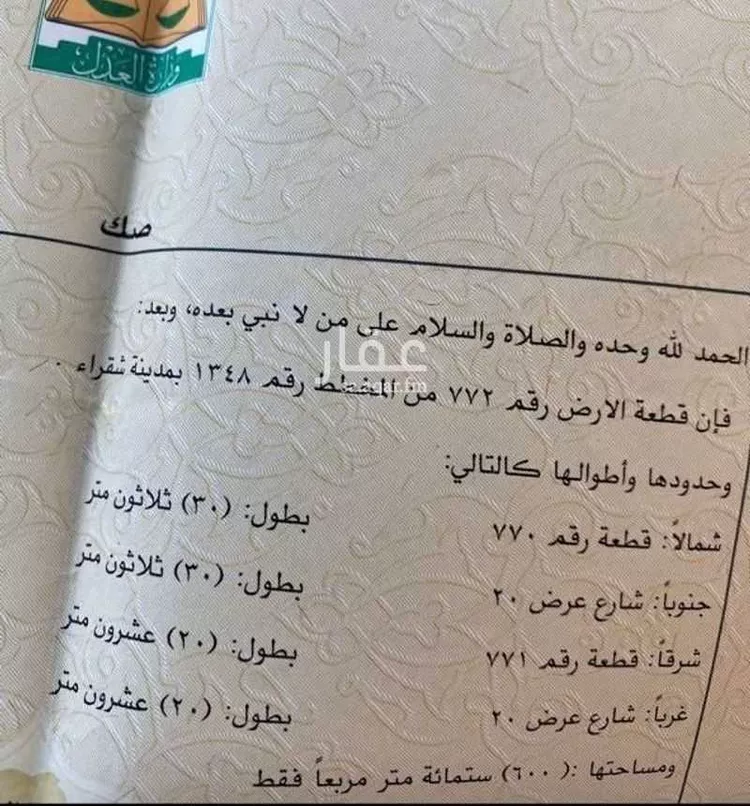 وزارة العدل
صك
الحمد لله وحده والصلاة والسلام على من لا نبي بعده، وبعد:
عقار
aqar.fm
فإن قطعة الارض رقم ٧٧٢ من المخطط رقم ١٣٤٨ بمدينة شقراء .
وحدودها وأطوالها كالتالي:
شمالاً: قطعة رقم ٧٧٠ بطول: (٣٠) ثلاثون متر
جنوباً: شارع عرض ٢٠ بطول: (٣٠) ثلاثون متر
شرقاً: قطعة رقم ٧٧١ بطول: (٢٠) عشرون متر
غرباً: شارع عرض ٢٠ بطول: (٢٠) عشرون متر
ومساحتها :( ٦٠٠) ستمائة متر مربعاً فقط